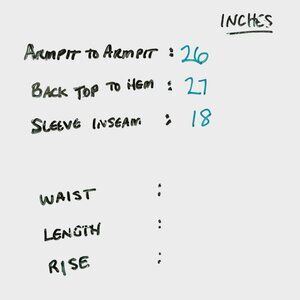 INCHES
ARMPIT TO ARMPIT : 26
BACK TOP TO HEM : 27
SLEEVE INSEAM : 18
WAIST :
LENGTH :
RISE :